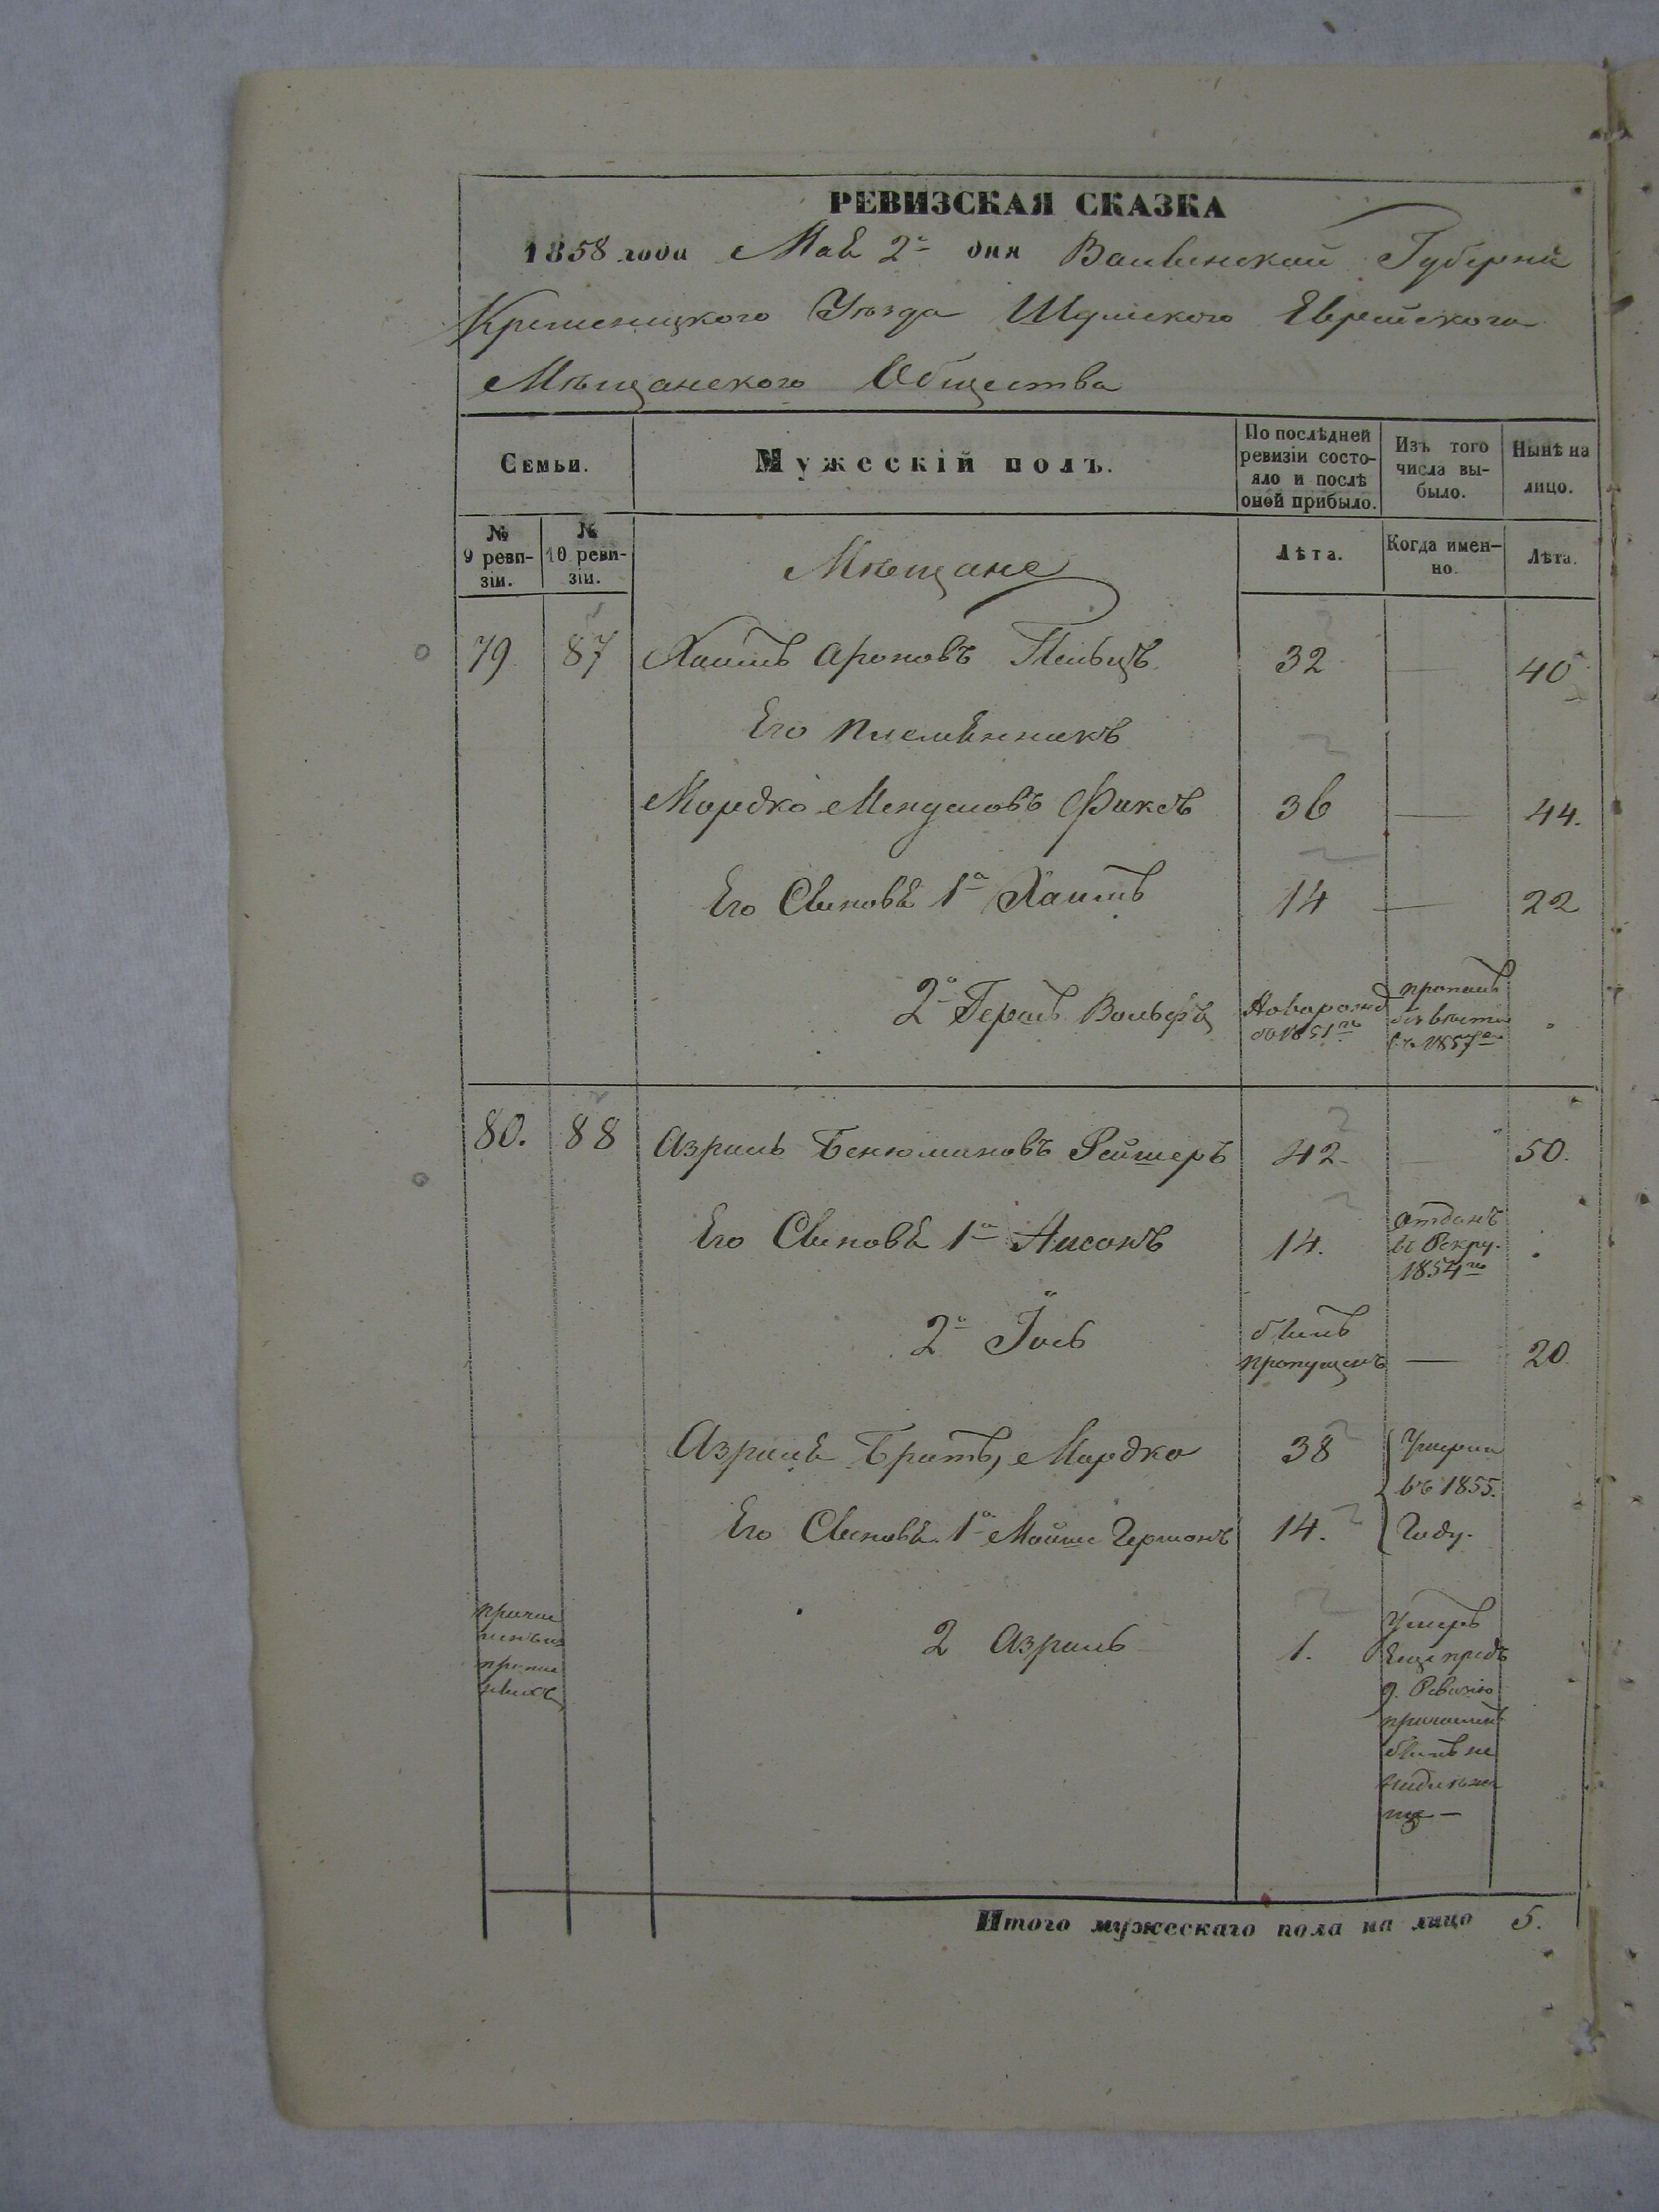 РЕВИЗСКАЯ СКАЗКА
1858 года Маѣ 2го дня Волынской Губерніи
Кременецкого Уѣзда Шумского Еврейского
Мѣщанского Общества
Семьи.
Мужескій полъ.
По послѣдней
ревизіи состо-
яло и послѣ
оной прибыло.
Изъ того
числа вы-
было.
Нынѣ на
лицо.
№
9 реви-
зіи.
№
10 реви-
зіи.
Мѣщане
Лѣта.
Когда имен-
но.
Лѣта.
79 87 Хаимъ Ароновъ 32 — 40
Его племѣнникъ
Мордко Менделовъ Фиксъ 36 — 44.
Его Сыновѣ 1й Хаимъ 14 — 22
2й Гершъ Вольфъ
Новорожд
1851го
пропалъ
без вѣсти
въ 1857го
80. 88 Азриль Бенюминовъ Рейшеръ 42 — 50.
Его Сыновѣ 1й Нисонъ 14.
отданъ
въ Рекру.
1854го
2й Іось
былъ
пропущенъ — 20.
Азриля Братъ, Мордко 38
Умерли
въ 1855.
Году.
Его Сыновѣ 1й Мойше Гершонъ 14.
2 Азриль 1.
Умеръ
Еще предъ
9. Ревизіею
былъ не
Итого мужескаго пола на лицо 5.